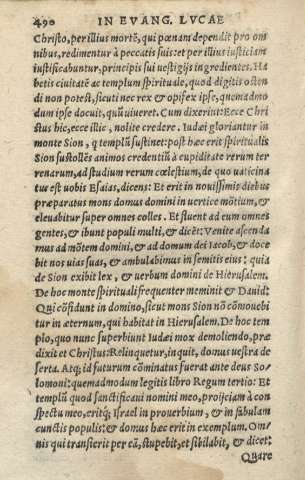 490 IN EVANG. LVCAE
Christo, per illius mortē, qui pœnam dependit pro om
nibus, redimentur à peccatis suis: et per illius iusticiam
iustificabuntur, principis sui uestigijs ingredientes. Ha
betis ciuitatē ac templum spirituale, quod digitis osten
di non potest, sicuti nec rex & opifex ipse, quemadmo
dum ipse docuit, quū uiueret. Cum dixerint: Ecce Chri
stus hic, ecce illic, nolite credere. Iudæi gloriantur in
monte Sion, q templū sustinet: post hæc erit spiritualis
Sion sustollēs animos credentiū à cupiditate rerum ter
renarum, ad studium rerum cœlestium, de quo uaticina
tus est uobis Esaias, dicens: Et erit in nouissimis diebus
præparatus mons domus domini in uertice mōtium, &
eleuabitur super omnes colles. Et fluent ad eum omnes
gentes, & ibunt populi multi, & dicēt: Venite ascenda
mus ad mōtem domini, & ad domum dei Iacob, & doce
bit nos uias suas, & ambulabimus in semitis eius: quia
de Sion exibit lex, & uerbum domini de Hierusalem.
De hoc monte spirituali frequenter meminit & Dauid:
Qui cōfidunt in domino, sicut mons Sion nō cōmouebi
tur in æternum, qui habitat in Hierusalem. De hoc tem
plo, quo nunc superbiunt Iudæi mox demoliendo, præ
dixit et Christus: Relinquetur, inquit, domus uestra de
serta. Atq; id futurum cōminatus fuerat ante deus So/
lomoni: quemadmodum legitis libro Regum tertio: Et
templū quod sanctificaui nomini meo, proijciam à con
spectu meo, eritq; Israel in prouerbium, & in fabulam
cunctis populis: & domus hæc erit in exemplum. Om/
nis qui transierit per eā, stupebit, et sibilabit, & dicet:
Quare